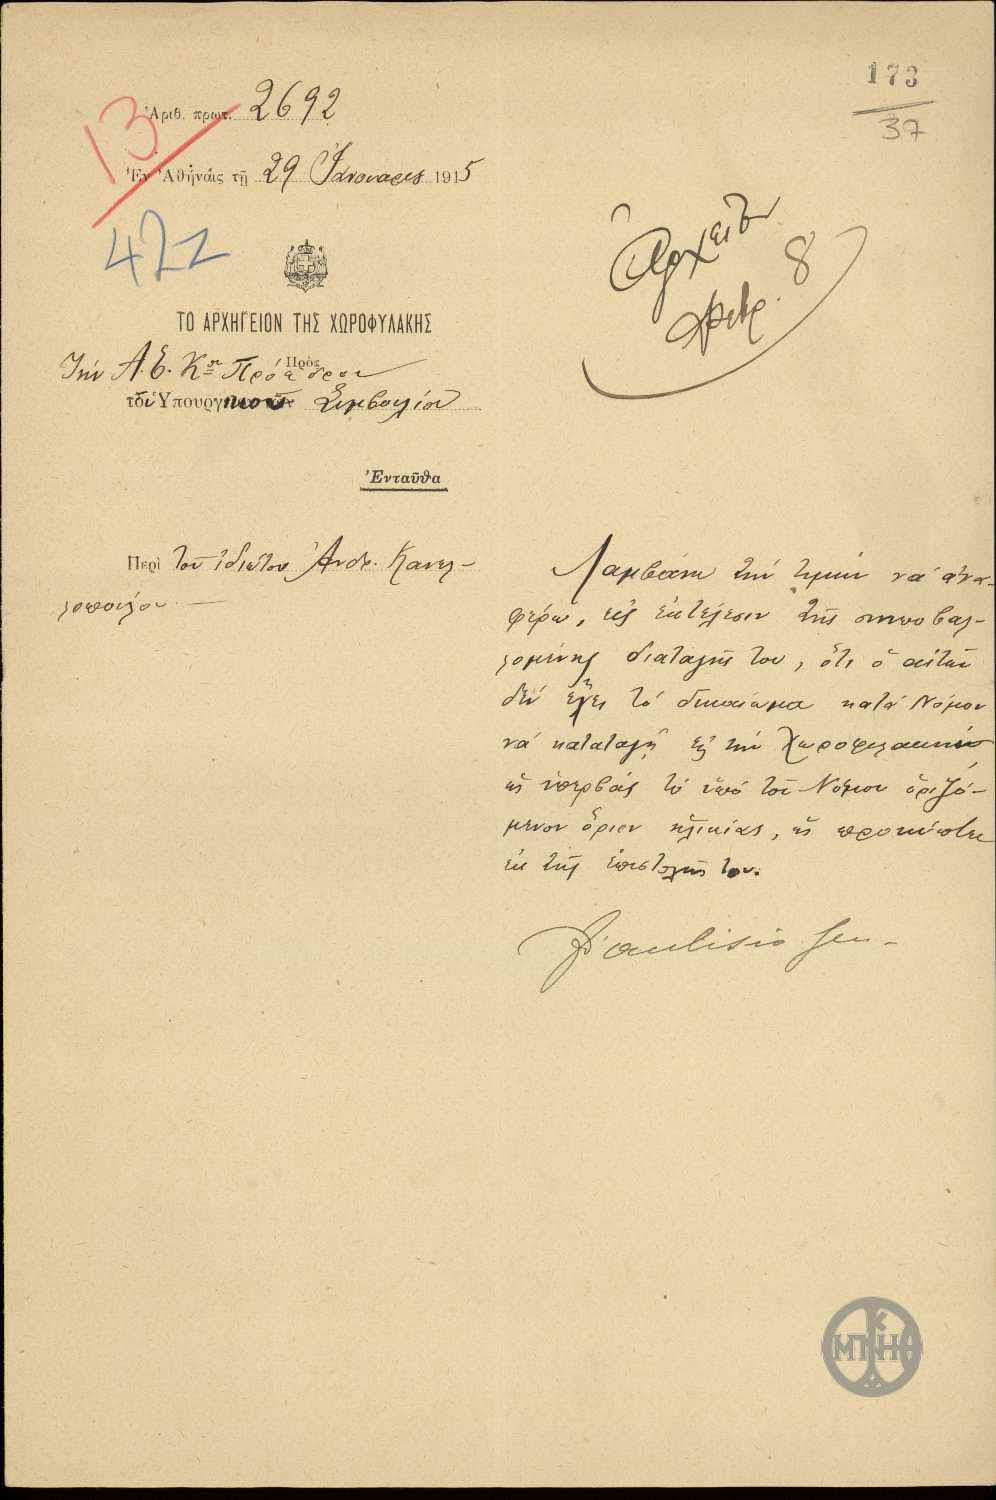 173
37
13
Ἀριθ. πρωτ. 2692
Ἐν Ἀθήναις τῇ 29 Ἰανουαρίου 1915
422
Ἀρχεῖον
Φεβρ. 8
ΤΟ ΑΡΧΗΓΕΙΟΝ ΤΗΣ ΧΩΡΟΦΥΛΑΚΗΣ
Πρὸς
Τὴν Α. Ε. Κον Πρόεδρον
τοῦ Ὑπουργικοῦ Συμβουλίου
Ἐνταῦθα
Περὶ τοῦ ἰδιώτου Ἀνδ. Κανελ-
λοπούλου.
Λαμβάνω τὴν τιμὴν νὰ ἀνα-
φέρω, εἰς ἐκτέλεσιν τῆς συνυποβαλ-
λομένης διαταγῆς του, ὅτι ὁ αἰτῶν
δὲν ἔχει τὸ δικαίωμα κατὰ Νόμον
νὰ καταταγῇ εἰς τὴν Χωροφυλακὴν
ὡς ὑπερβὰς τὸ ὑπὸ τοῦ Νόμου ὁριζό-
μενον ὅριον ἡλικίας, ὡς προκύπτει
ἐκ τῆς ἐπιστολῆς του.
ΜΠΚΗ